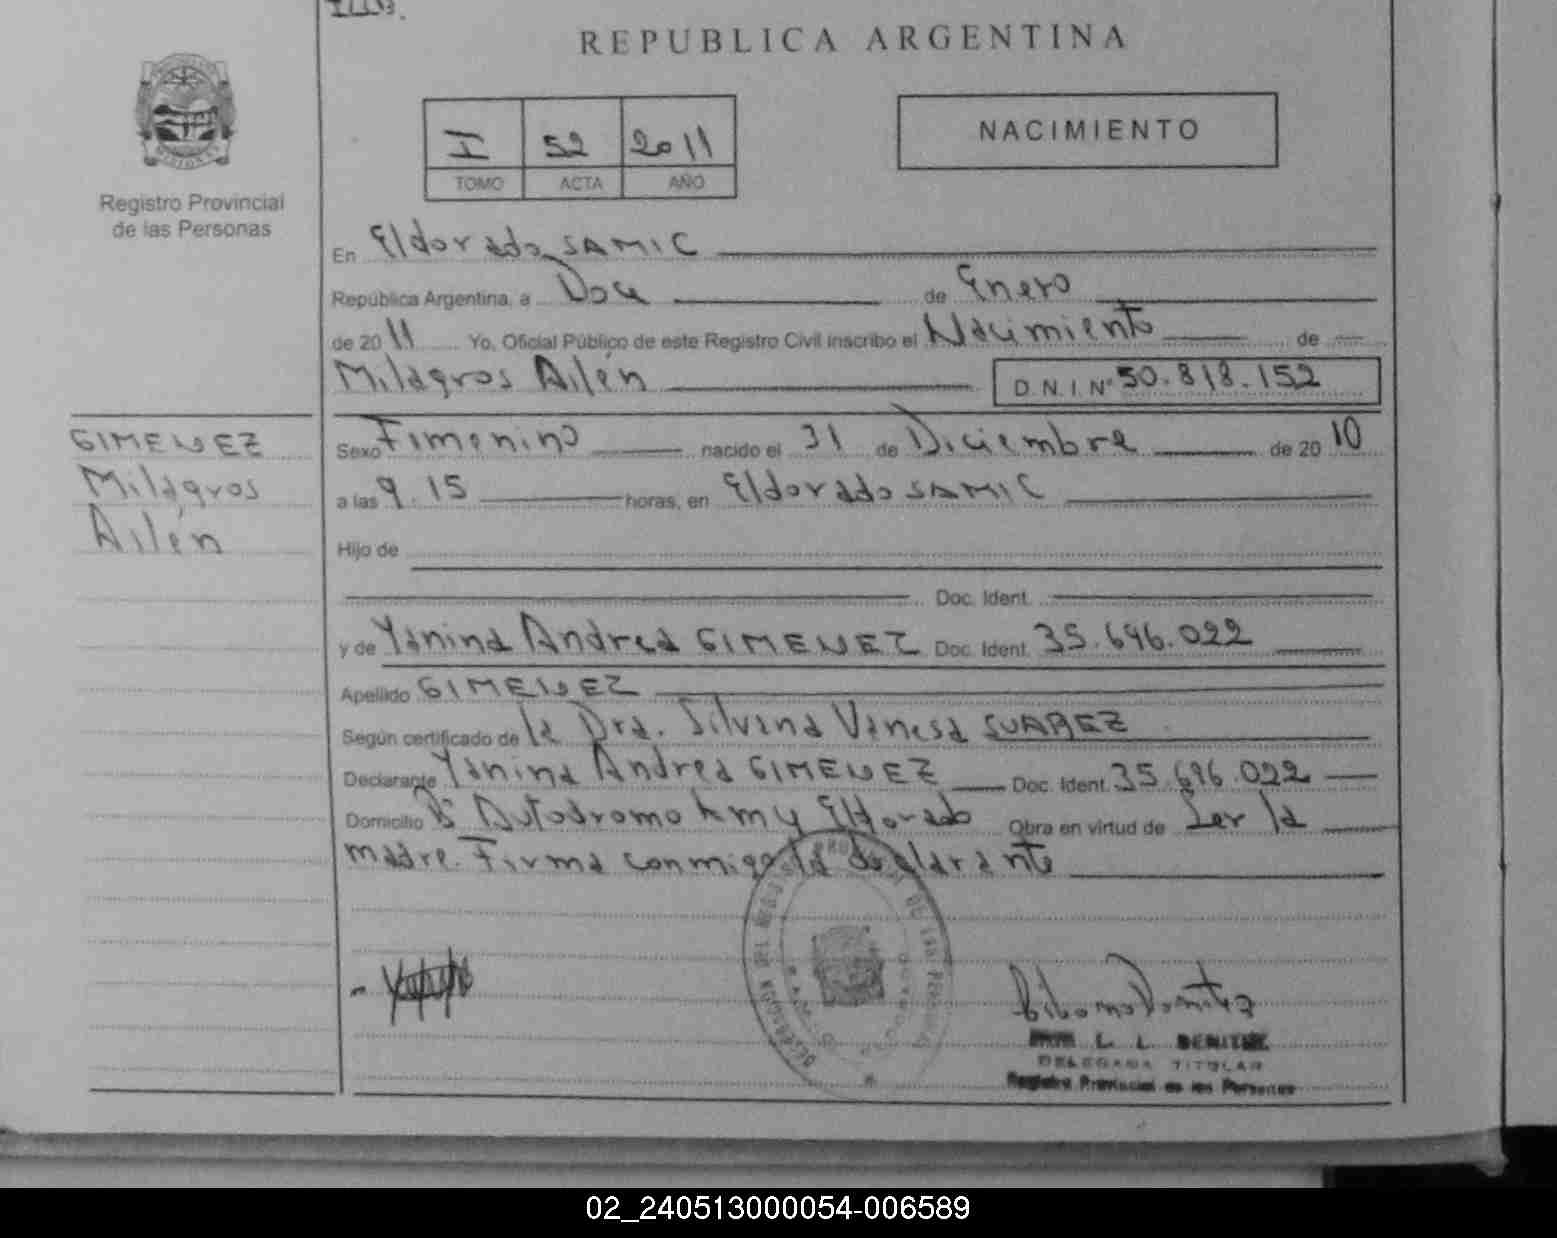 REPUBLICA ARGENTINA
Registro Provincial
de las Personas
I 52 2011
TOMO ACTA AÑO
NACIMIENTO
En Eldorado SAMIC
República Argentina, a Doce de Enero
de 2011 Yo, Oficial Público de este Registro Civil inscribo el Nacimiento de
Milagros Ailén D.N.I. Nº 50.818.152
GIMENEZ
Milagros
Ailén
Sexo Femenino nacido el 31 de Diciembre de 2010
a las 9.15 horas, en Eldorado SAMIC
Hijo de
Doc. Ident.
y de Yanina Andrea GIMENEZ Doc. Ident. 35.696.022
Apellido GIMENEZ
Según certificado de la Dra. Silvana Vanesa SUAREZ
Declarante Yanina Andrea GIMENEZ Doc. Ident. 35.696.022
Domicilio Bº Autodromo Km 4 Eldorado Obra en virtud de Ser la
madre. Firma conmigo la declarante
L. L. BENITEZ
DELEGADA TITULAR
Registro Provincial de las Personas
02_240513000054-006589